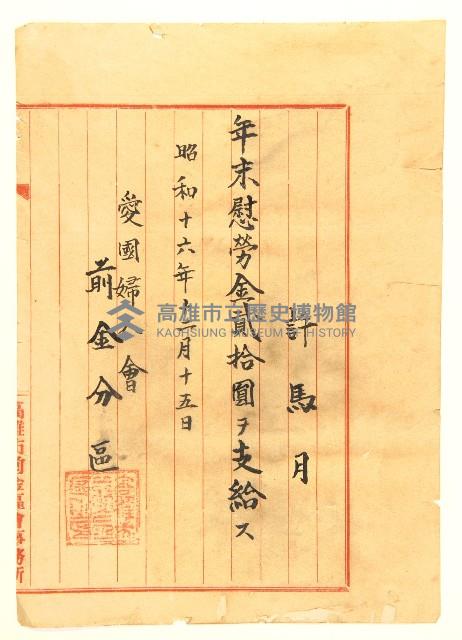 許馬月
年末慰勞金貳拾圓ヲ支給ス
昭和十六年十二月十五日
愛國婦人會
前金分區
高雄市前金區會事務所
高雄市立歷史博物館
KAOHSIUNG MUSEUM OF HISTORY